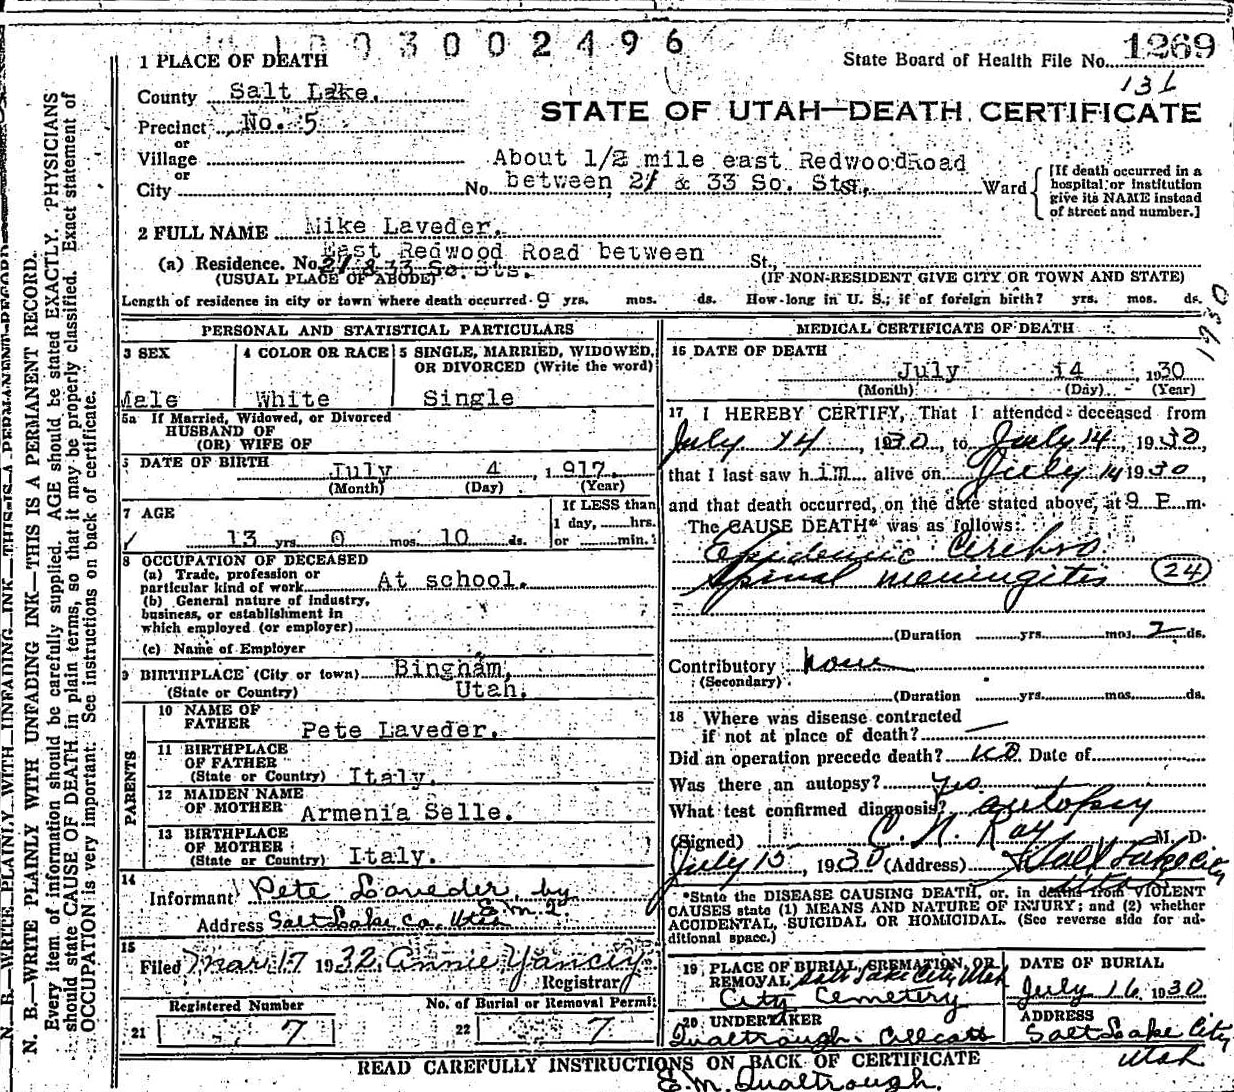 1003002496
State Board of Health File No. 1269
131
1 PLACE OF DEATH
County Salt Lake.
STATE OF UTAH—DEATH CERTIFICATE
Precinct No. 5
or
Village
or
City
About 1/2 mile east Redwood Road
No between 21 & 33 So. Sts. Ward
[If death occurred in a
hospital or institution
give its NAME instead
of street and number.]
2 FULL NAME Mike Laveder.
East Redwood Road between
(a) Residence. No. 21 & 33 So. Sts. St.,
(USUAL PLACE OF ABODE) (IF NON-RESIDENT GIVE CITY OR TOWN AND STATE)
Length of residence in city or town where death occurred 9 yrs. mos. ds. How long in U. S.; if of foreign birth? yrs. mos. ds.
1930
PERSONAL AND STATISTICAL PARTICULARS
3 SEX
Male
4 COLOR OR RACE
White
5 SINGLE, MARRIED, WIDOWED,
OR DIVORCED (Write the word)
Single
5a If Married, Widowed, or Divorced
HUSBAND OF
(OR) WIFE OF
6 DATE OF BIRTH
July 4 1917.
(Month) (Day) (Year)
7 AGE
13 yrs. 0 mos. 10 ds.
If LESS than
1 day, hrs.
or min.
8 OCCUPATION OF DECEASED
(a) Trade, profession or
particular kind of work At school.
(b) General nature of industry,
business, or establishment in
which employed (or employer)
(c) Name of Employer
9 BIRTHPLACE (City or town) Bingham,
(State or Country) Utah.
PARENTS
10 NAME OF
FATHER Pete Laveder.
11 BIRTHPLACE
OF FATHER
(State or Country) Italy.
12 MAIDEN NAME
OF MOTHER Armenia Selle.
13 BIRTHPLACE
OF MOTHER
(State or Country) Italy.
14
Informant Pete Laveder by
E.M.Q.
Address Salt Lake Co. Utah
15
Filed Mar 17 1932, Annie Yancey
Registrar
Registered Number
21 7
No. of Burial or Removal Permit
22 7
MEDICAL CERTIFICATE OF DEATH
16 DATE OF DEATH
July 14 1930
(Month) (Day) (Year)
17 I HEREBY CERTIFY, That I attended deceased from
July 14, 1930, to July 14, 1930,
that I last saw him alive on July 14 1930,
and that death occurred, on the date stated above, at 9 P. m.
The CAUSE DEATH* was as follows:
Epidemic Cerebro
Spinal meningitis (24)
(Duration yrs. mos. 2 ds.
Contributory none
(Secondary)
(Duration yrs. mos. ds.
18 Where was disease contracted
if not at place of death? —
Did an operation precede death? no Date of
Was there an autopsy? Yes.
What test confirmed diagnosis? autopsy
(Signed) C. N. Ray M. D.
July 15, 1930 (Address) Salt Lake City
Utah
*State the DISEASE CAUSING DEATH, or, in deaths from VIOLENT
CAUSES state (1) MEANS AND NATURE OF INJURY; and (2) whether
ACCIDENTAL, SUICIDAL OR HOMICIDAL. (See reverse side for ad-
ditional space.)
19 PLACE OF BURIAL, CREMATION, OR
REMOVAL Salt Lake City Utah
City Cemetery
DATE OF BURIAL
July 16 1930
20 UNDERTAKER
Qualtrough
ADDRESS
Salt Lake City
Utah
E.M. Qualtrough.
READ CAREFULLY INSTRUCTIONS ON BACK OF CERTIFICATE
N. B.—WRITE PLAINLY WITH UNFADING INK—THIS IS A PERMANENT RECORD.
N. B.—WRITE PLAINLY WITH UNFADING INK—THIS IS A PERMANENT RECORD.
Every item of information should be carefully supplied. AGE should be stated EXACTLY. PHYSICIANS
should state CAUSE OF DEATH in plain terms, so that it may be properly classified. Exact statement of
OCCUPATION is very important. See instructions on back of certificate.